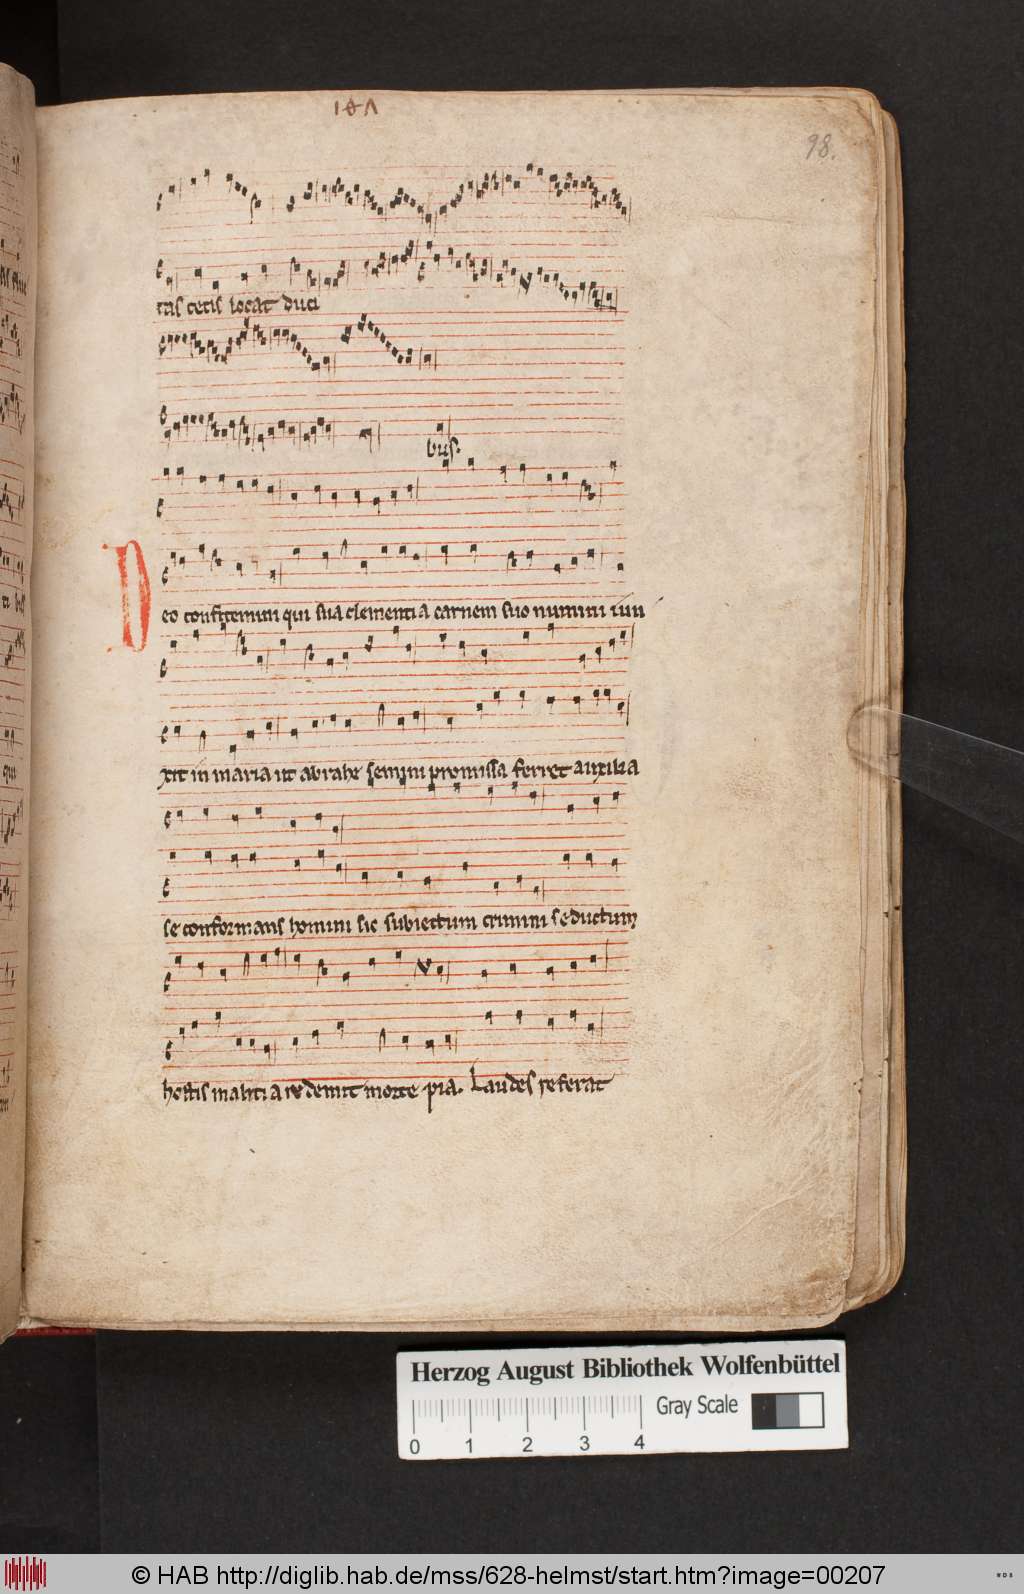 98.
tis cetis locat duci
bus.
Deo confitemini qui sua clementia carnem suo numini iun
xit in maria ut abrahe semini promissa ferret auxilia
se conformans homini sic subiectum crimini seductum
hostis malicia redemit morte pia. Laudes referat
Herzog August Bibliothek Wolfenbüttel
Gray Scale
0 1 2 3 4
© HAB http://diglib.hab.de/mss/628-helmst/start.htm?image=00207